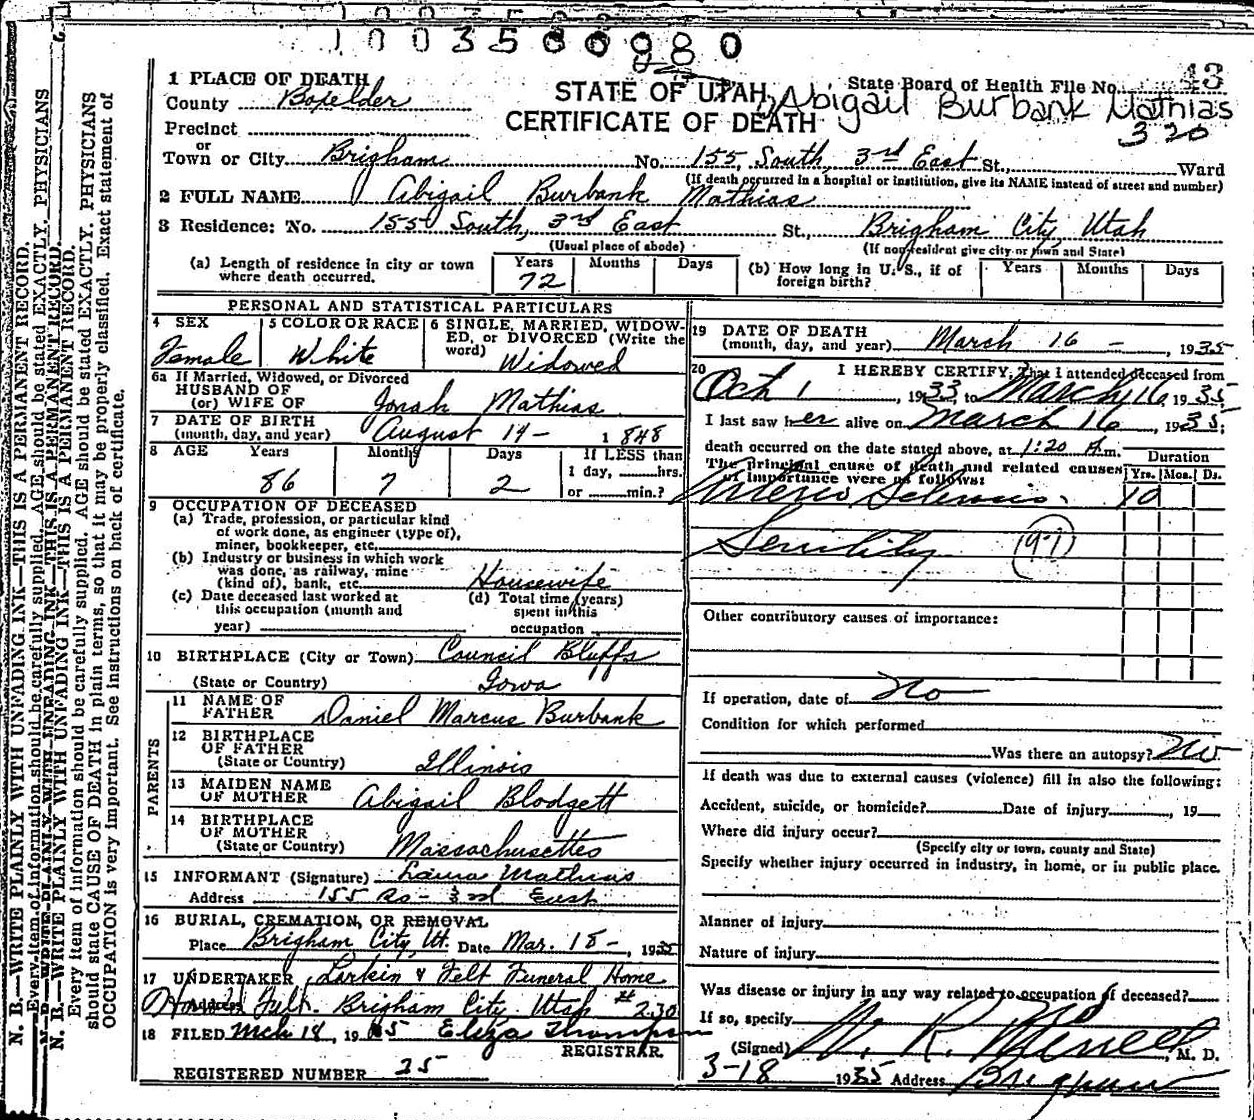 1003500980
1 PLACE OF DEATH
County Boxelder
Precinct
or
Town or City Brigham No. 155 South, 3rd East St., Ward
(If death occurred in a hospital or institution, give its NAME instead of street and number)
STATE OF UTAH
CERTIFICATE OF DEATH
State Board of Health File No. 43
Abigail Burbank Mathias
320
2 FULL NAME Abigail Burbank Mathias
3 Residence: No. 155 South, 3rd East St., Brigham City, Utah
(Usual place of abode) (If nonresident give city or town and State)
(a) Length of residence in city or town where death occurred. Years 72 Months Days
(b) How long in U. S., if of foreign birth? Years Months Days
PERSONAL AND STATISTICAL PARTICULARS
4 SEX Female
5 COLOR OR RACE White
6 SINGLE, MARRIED, WIDOWED, or DIVORCED (Write the word) Widowed
6a If Married, Widowed, or Divorced
HUSBAND OF
(or) WIFE OF Jonah Mathias
7 DATE OF BIRTH
(month, day, and year) August 14 - 1848
8 AGE Years 86 Months 7 Days 2 If LESS than 1 day, hrs. or min.?
9 OCCUPATION OF DECEASED
(a) Trade, profession, or particular kind
of work done, as engineer (type of),
miner, bookkeeper, etc.
(b) Industry or business in which work
was done, as railway, mine
(kind of), bank, etc. Housewife
(c) Date deceased last worked at
this occupation (month and
year)
(d) Total time (years)
spent in this
occupation
10 BIRTHPLACE (City or Town) Council Bluffs
(State or Country) Iowa
PARENTS
11 NAME OF
FATHER Daniel Marcus Burbank
12 BIRTHPLACE
OF FATHER
(State or Country) Illinois
13 MAIDEN NAME
OF MOTHER Abigail Blodgett
14 BIRTHPLACE
OF MOTHER
(State or Country) Massachusettes
15 INFORMANT (Signature) Laura Mathias
Address 155 So - 3rd East
16 BURIAL, CREMATION, OR REMOVAL
Place Brigham City, Ut. Date Mar. 18 -, 1935
17 UNDERTAKER Larkin & Felt Funeral Home
Address Felt. Brigham City Utah #230
18 FILED Mch 18, 1935 Eliza Thompson
REGISTRAR.
REGISTERED NUMBER 25
19 DATE OF DEATH
(month, day, and year) March 16 -, 1935
20 I HEREBY CERTIFY, That I attended deceased from
Oct 1, 1933, to March 16, 1935
I last saw her alive on March 16, 1935;
death occurred on the date stated above, at 1:20 A.m.
The principal cause of death and related causes
of importance were as follows:
Duration
Yrs. Mos. Ds.
Arterio Sclerosis. 10
Senility (97)
Other contributory causes of importance:
If operation, date of No
Condition for which performed
Was there an autopsy? No
If death was due to external causes (violence) fill in also the following:
Accident, suicide, or homicide? Date of injury, 19
Where did injury occur?
(Specify city or town, county and State)
Specify whether injury occurred in industry, in home, or in public place.
Manner of injury
Nature of injury
Was disease or injury in any way related to occupation of deceased? no
If so, specify
(Signed) W. R. Merrell, M. D.
3-18 1935 Address Brigham
N. B.—WRITE PLAINLY WITH UNFADING INK—THIS IS A PERMANENT RECORD.
Every item of information should be carefully supplied. AGE should be stated EXACTLY. PHYSICIANS
N. B.—WRITE PLAINLY WITH UNFADING INK—THIS IS A PERMANENT RECORD.
N. B.—WRITE PLAINLY WITH UNFADING INK—THIS IS A PERMANENT RECORD.
Every item of information should be carefully supplied. AGE should be stated EXACTLY. PHYSICIANS
should state CAUSE OF DEATH in plain terms, so that it may be properly classified. Exact statement of
OCCUPATION is very important. See instructions on back of certificate.